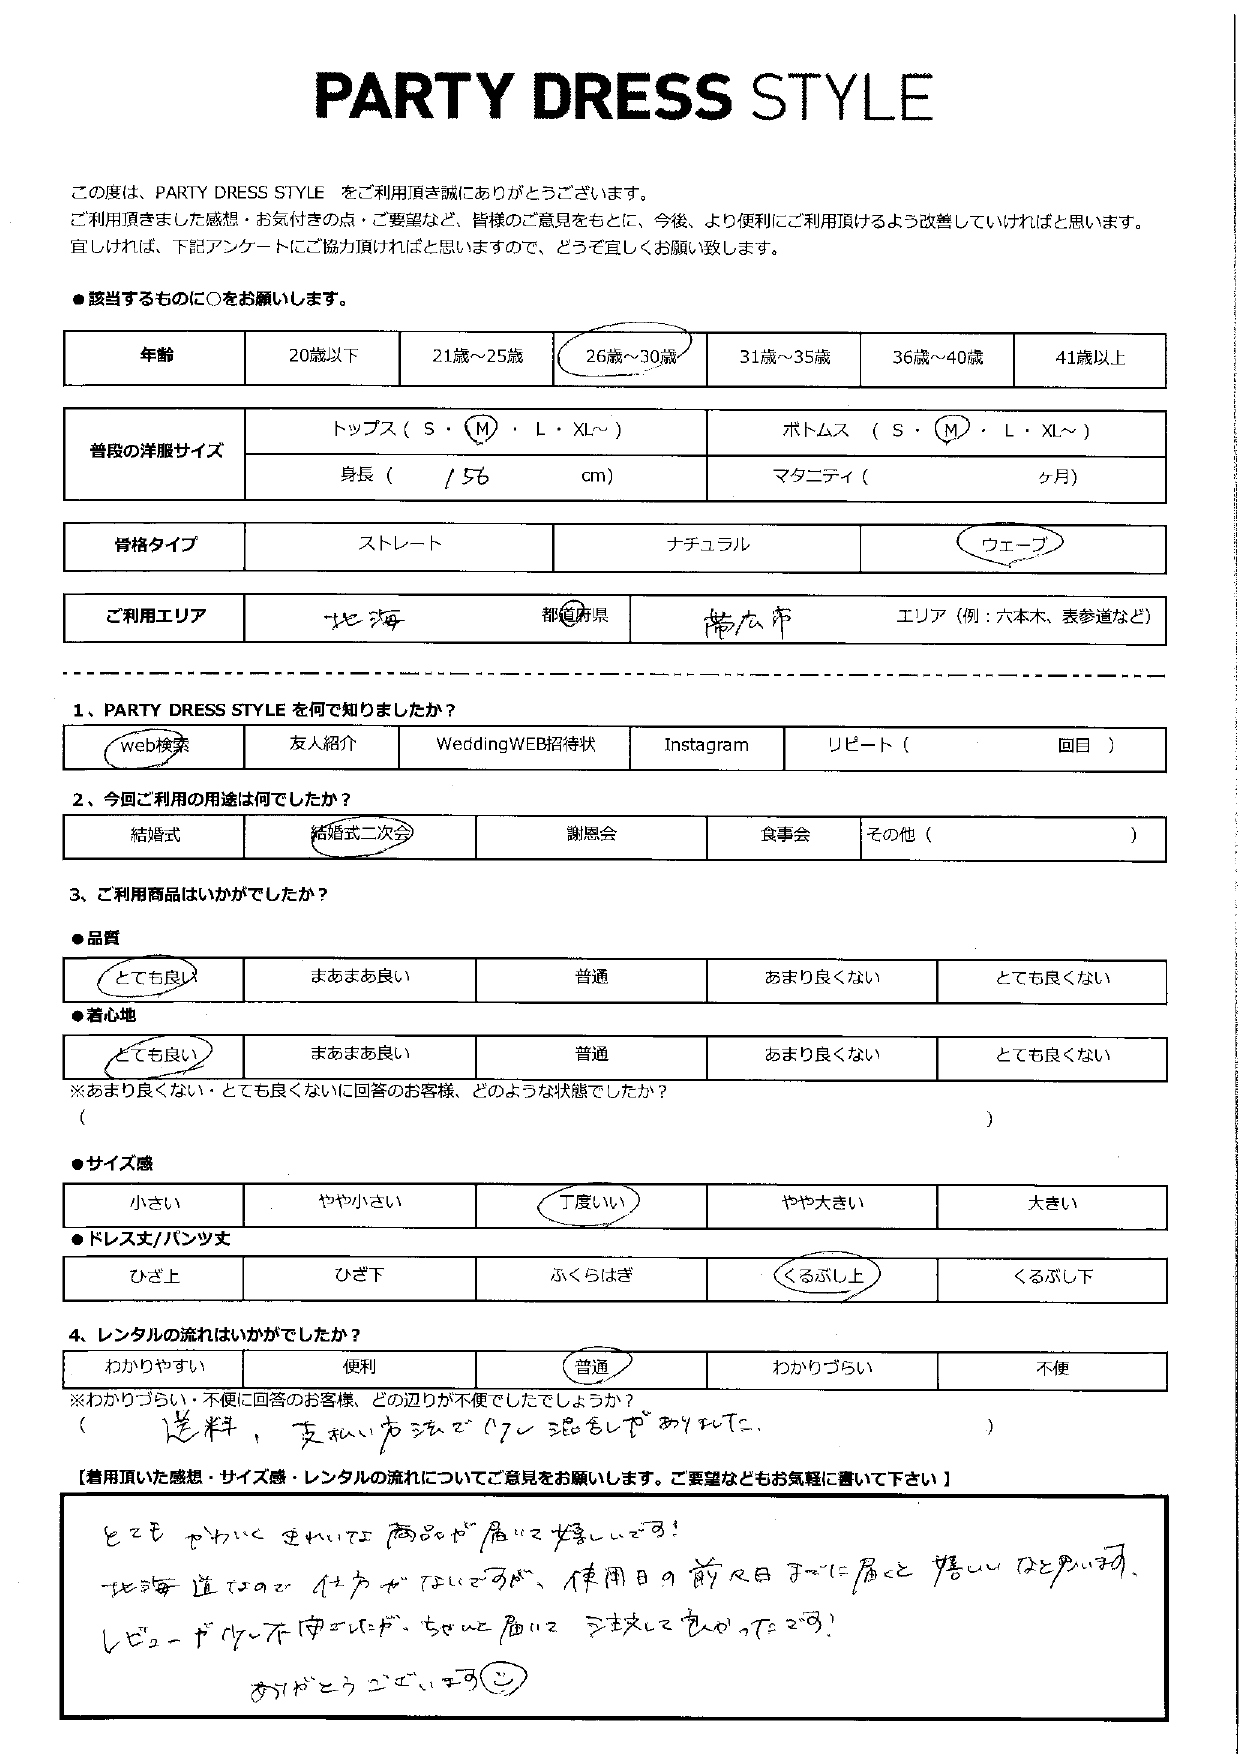 PARTY DRESS STYLE
この度は、PARTY DRESS STYLE をご利用頂き誠にありがとうございます。
ご利用頂きました感想・お気付きの点・ご要望など、皆様のご意見をもとに、今後、より便利にご利用頂けるよう改善していければと思います。
宜しければ、下記アンケートにご協力頂ければと思いますので、どうぞ宜しくお願い致します。
●該当するものに○をお願いします。
年齢 20歳以下 21歳～25歳 26歳～30歳 31歳～35歳 36歳～40歳 41歳以上
普段の洋服サイズ トップス ( S ・ M ・ L ・ XL～ ) ボトムス ( S ・ M ・ L ・ XL～ )
身長 ( 156 cm) マタニティ ( ヶ月)
骨格タイプ ストレート ナチュラル ウェーブ
ご利用エリア 北海 都道府県 帯広市 エリア（例：六本木、表参道など）
1、PARTY DRESS STYLE を何で知りましたか？
web検索 友人紹介 WeddingWEB招待状 Instagram リピート ( 回目 )
2、今回ご利用の用途は何でしたか？
結婚式 結婚式二次会 謝恩会 食事会 その他 ( )
3、ご利用商品はいかがでしたか？
●品質
とても良い まあまあ良い 普通 あまり良くない とても良くない
●着心地
とても良い まあまあ良い 普通 あまり良くない とても良くない
※あまり良くない・とても良くないに回答のお客様、どのような状態でしたか？
( )
●サイズ感
小さい やや小さい 丁度いい やや大きい 大きい
●ドレス丈/パンツ丈
ひざ上 ひざ下 ふくらはぎ くるぶし上 くるぶし下
4、レンタルの流れはいかがでしたか？
わかりやすい 便利 普通 わかりづらい 不便
※わかりづらい・不便に回答のお客様、どの辺りが不便でしたでしょうか？
( 送料、支払い方法で少し混乱しがありました。 )
【着用頂いた感想・サイズ感・レンタルの流れについてご意見をお願いします。ご要望などもお気軽に書いて下さい 】
とても かわいく きれいな 商品が 届いて 嬉しいです！
北海道なので 仕方が ないですが、使用日の前々日までに届くと 嬉しいなと思います。
レビューが少し不安でしたが、ちゃんと届いて 注文して良かったです！
ありがとうございます